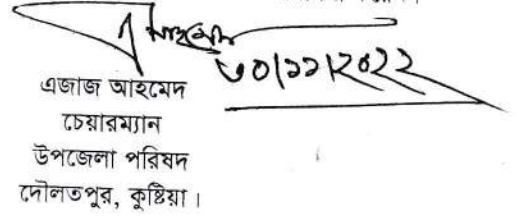 ৩০|১১|২০২২
এজাজ আহমেদ
চেয়ারম্যান
উপজেলা পরিষদ
দৌলতপুর, কুষ্টিয়া।